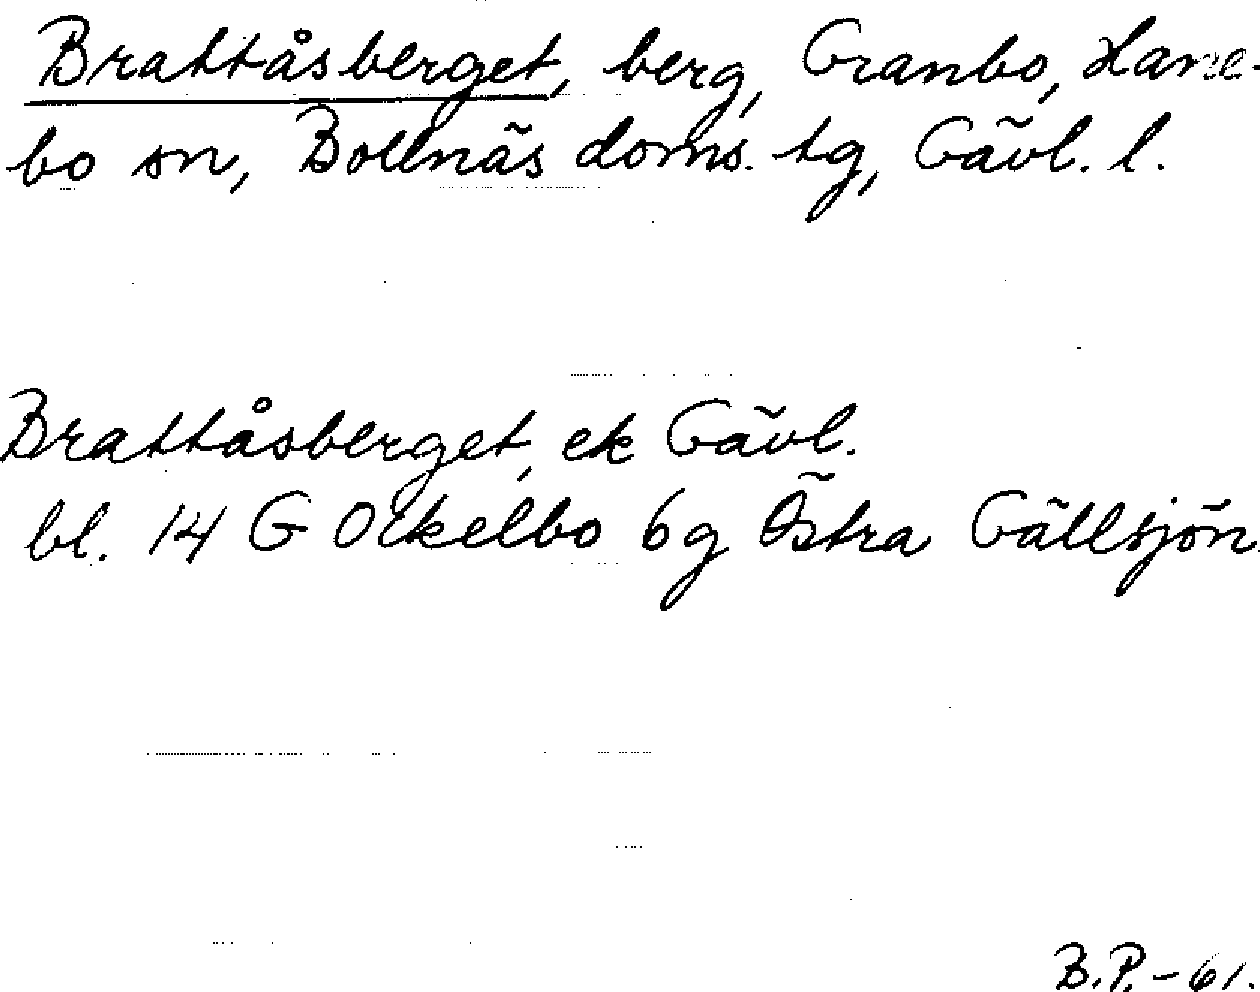 Brattåsberget, berg, Granbo, Hane-
bo sn, Bollnäs doms. tg, Gävl. l.
Brattåsberget, ek Gävl.
bl. 14 G Ockelbo 6g Östra Gällsjön.
B.P. - 61.